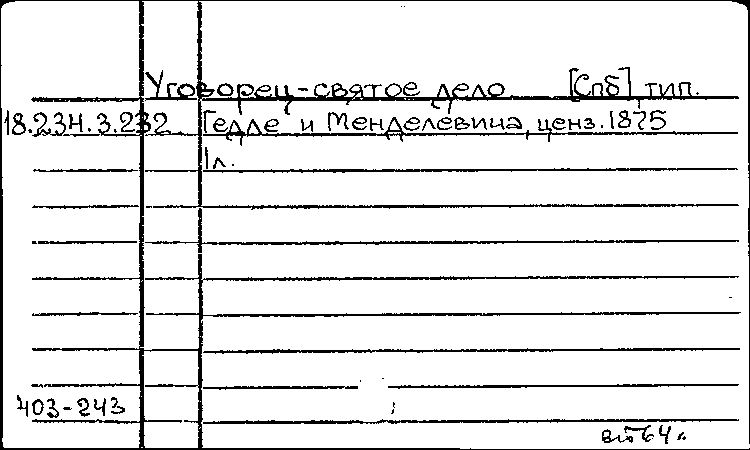 Уговорец-святое дело [Спб] тип.
18.234.3.232 Гедле и Менделевича, ценз. 1875
1л.
403-243
64 г.